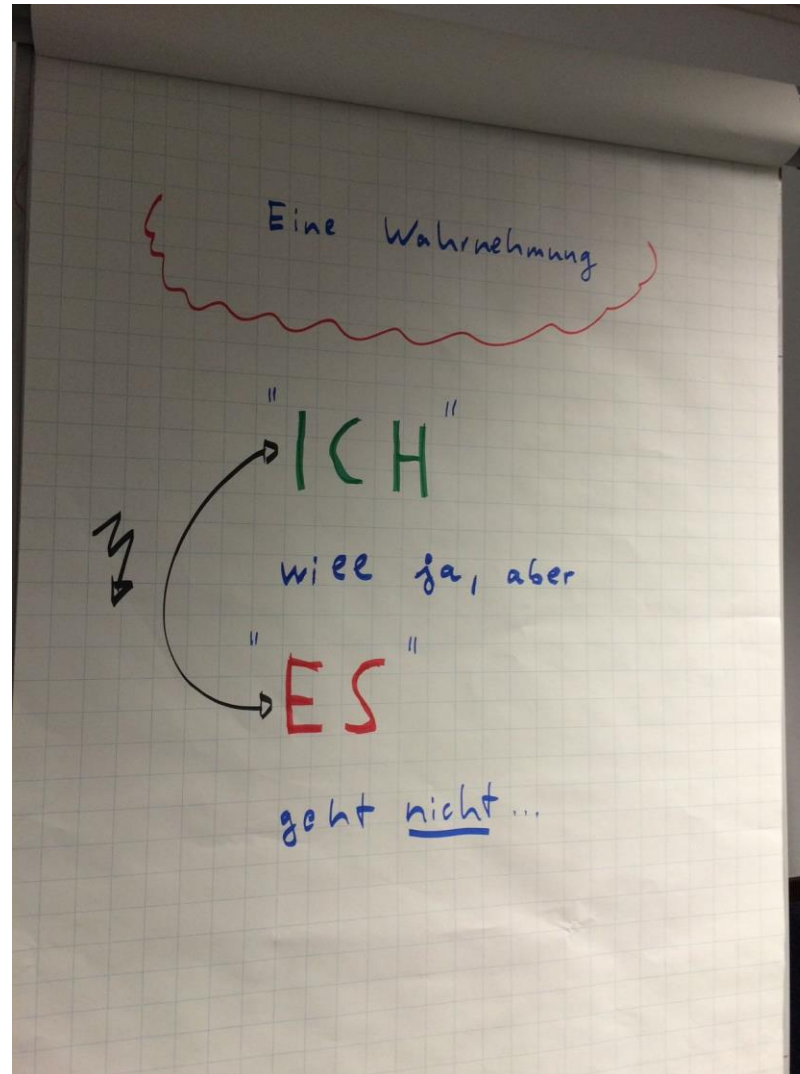 Eine Wahrnehmung
"ICH"
will ja, aber
"ES"
geht nicht...